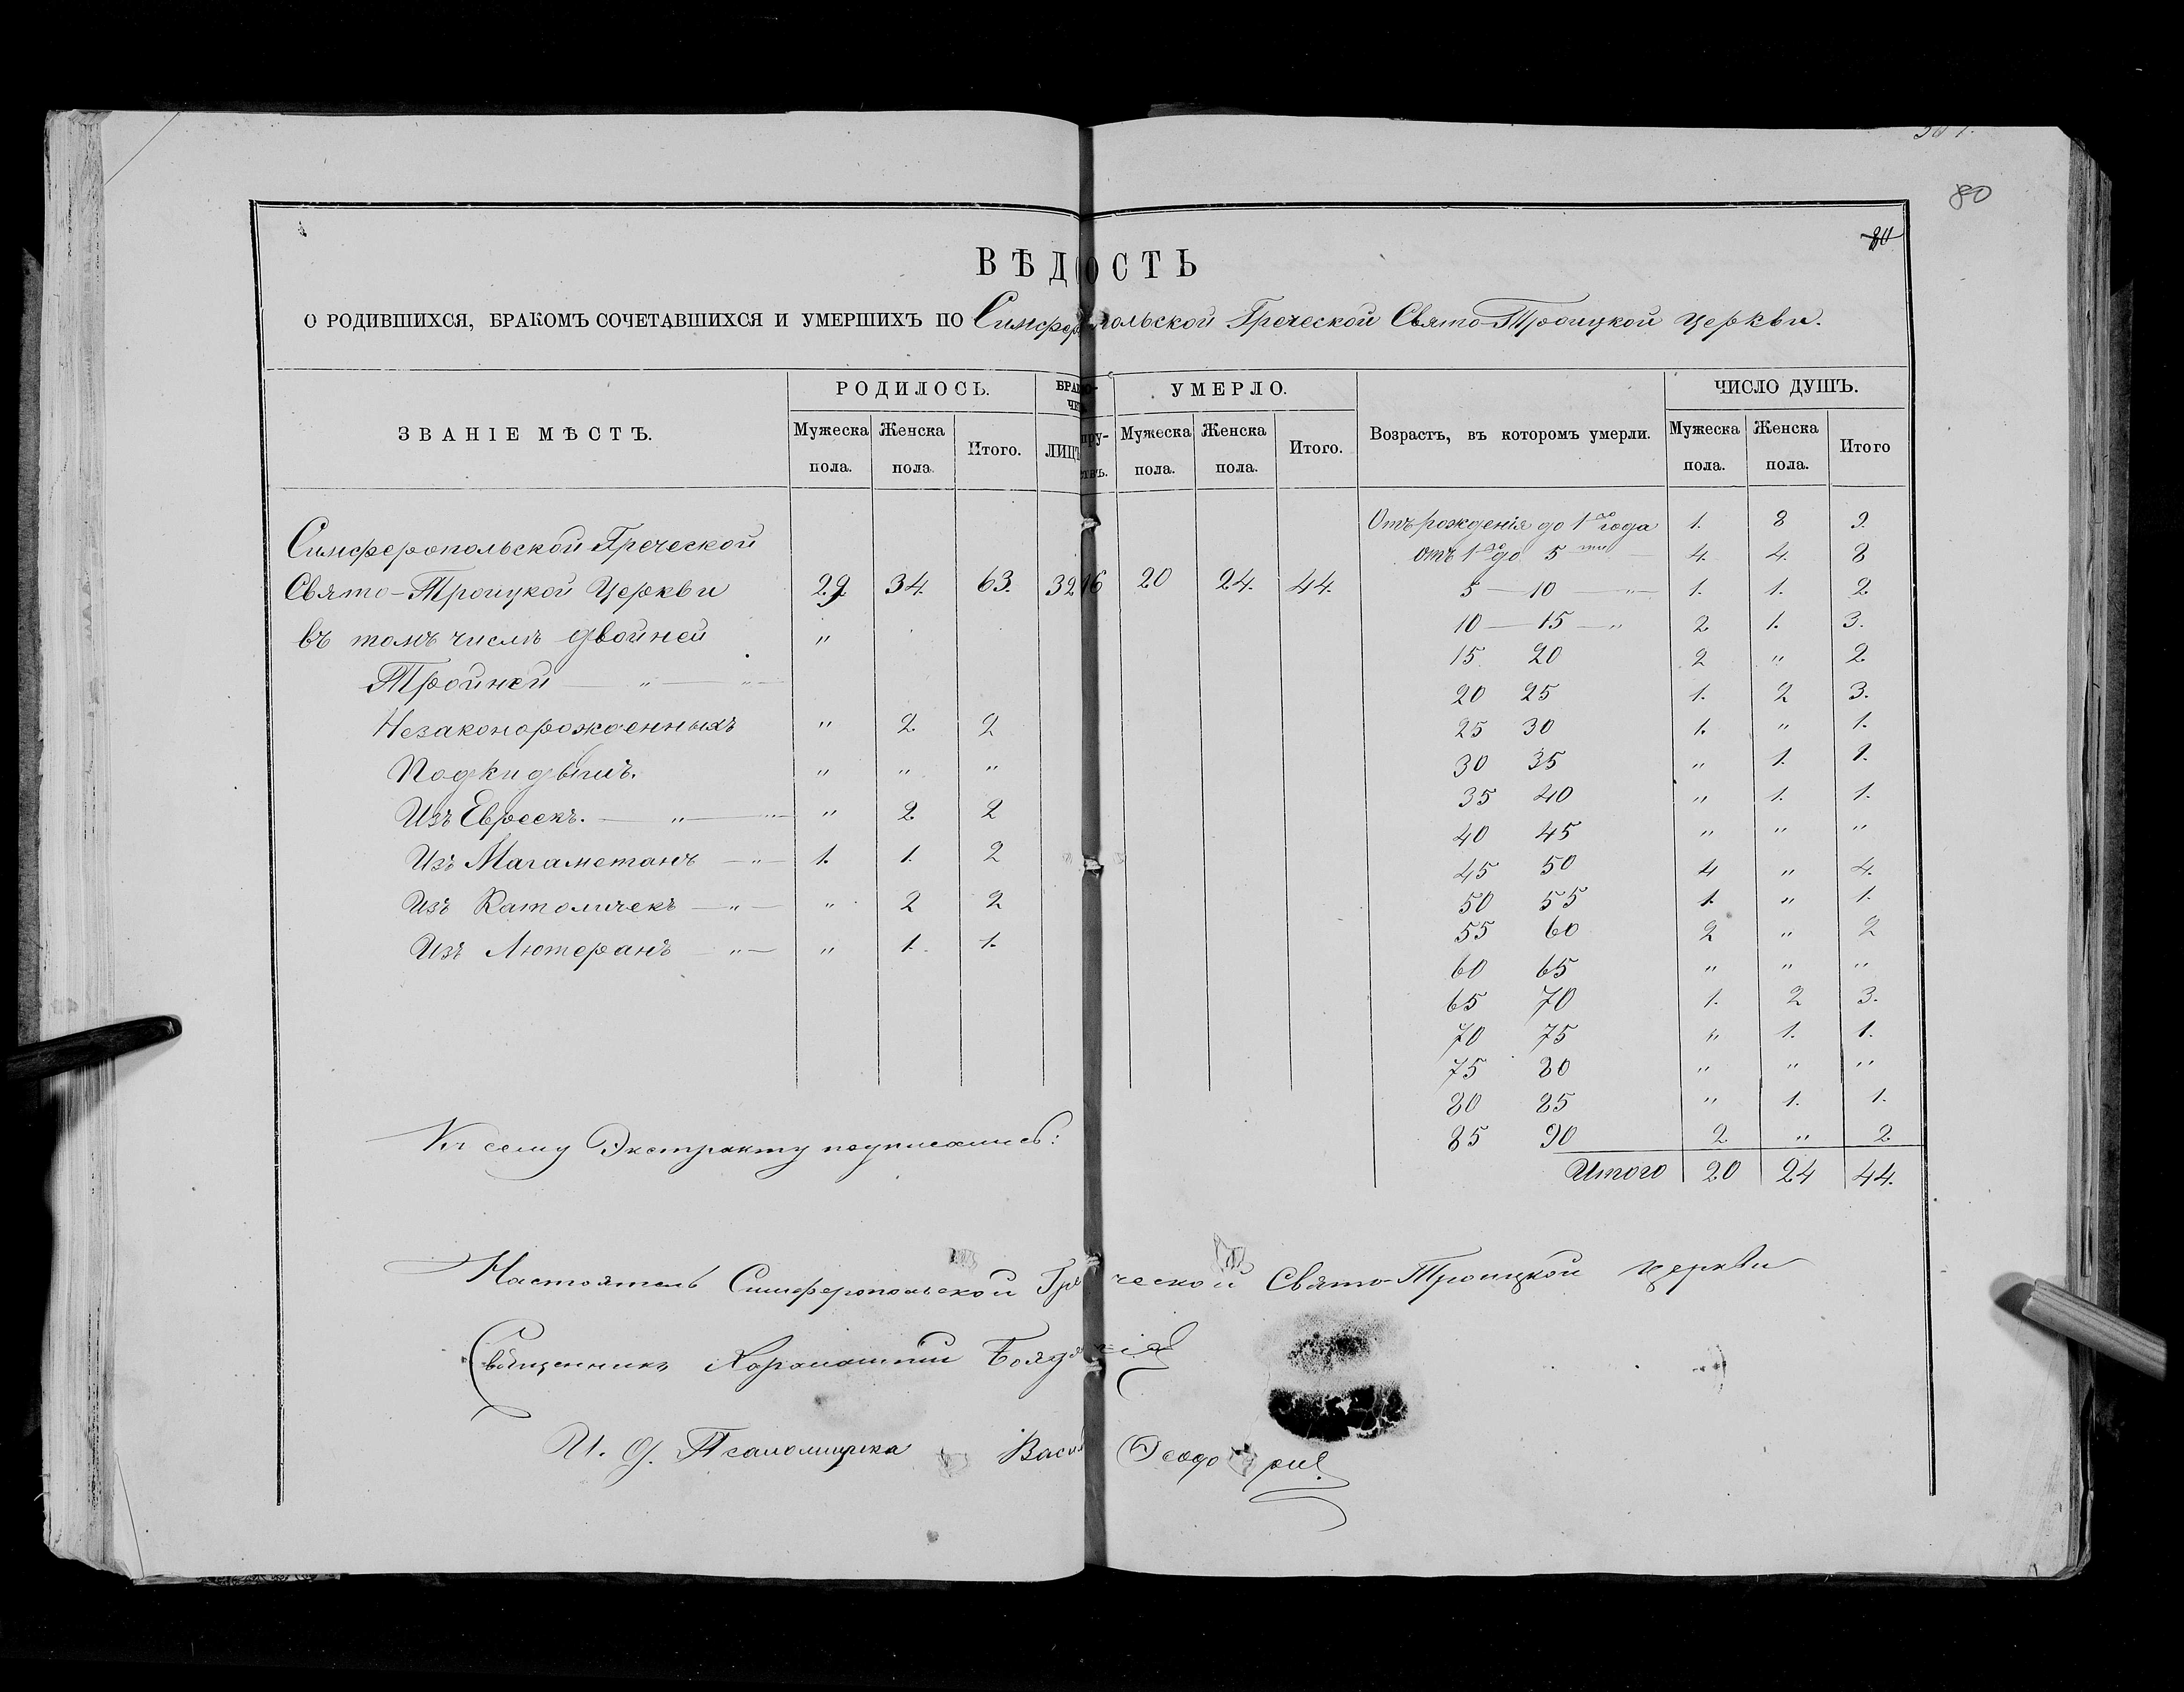 80
80
ВѢДОСТЬ
О РОДИВШИХСЯ, БРАКОМЪ СОЧЕТАВШИХСЯ И УМЕРШИХЪ ПО Симферопольской Греческой Свято-Троицкой церкви.
ЗВАНІЕ МѢСТЪ. РОДИЛОСЬ. УМЕРЛО. Возрастъ, въ которомъ умерли. ЧИСЛО ДУШЪ.
Мужеска пола. Женска пола. Итого. ЛИЦЪ Мужеска пола. Женска пола. Итого. Мужеска пола. Женска пола. Итого
Симферопольской Греческой
Свято-Троицкой Церкви 29. 34. 63. 32 16 20 24. 44.
въ томъ числѣ двойней "
Тройней — " — " —
Незаконорожденныхъ " 2. 2
Подкидыш. " " "
Изъ Евреекъ. — " — " — " 2. 2
Изъ Магаметанъ — " — 1. 1. 2
Изъ Католичекъ — " — " 2 2
Изъ Лютеранъ — " — " 1. 1.
Отъ рожденія до 1го года 1. 8 9.
отъ 1го до 5ти — 4. 4. 8
5 — 10 — " — 1. 1. 2
10 — 15 — " 2 1. 3.
15 20 2 " 2
20 25 1. 2 3.
25 30 1. " 1.
30 35 " 1. 1.
35 40 " 1. 1.
40 45 " " "
45 50 4 " 4.
50 55 1. " 1.
55 60 2 " 2
60 65 " " "
65 70 1. 2 3.
70 75 " 1. 1.
75 80 " " "
80 85 " 1. 1.
85 90 2 " 2
Итого 20 24 44.
Къ сему Экстракту подписались:
Настоятель Симферопольской Греческой Свято-Троицкой церкви
Священникъ
И. д. Псаломщика